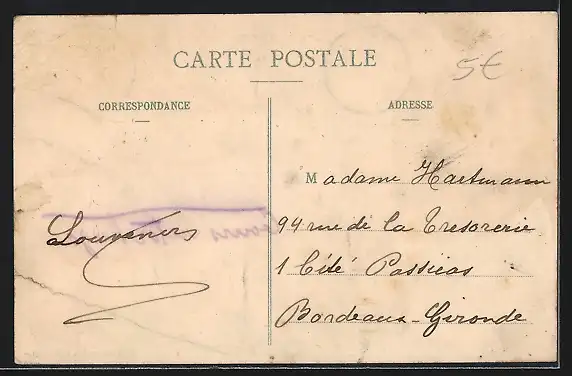 CARTE POSTALE
5€
CORRESPONDANCE
ADRESSE
Souvenirs
Madame Hartmann
94 rue de la Tresorerie
1 Cité Passicos
Bordeaux-Gironde